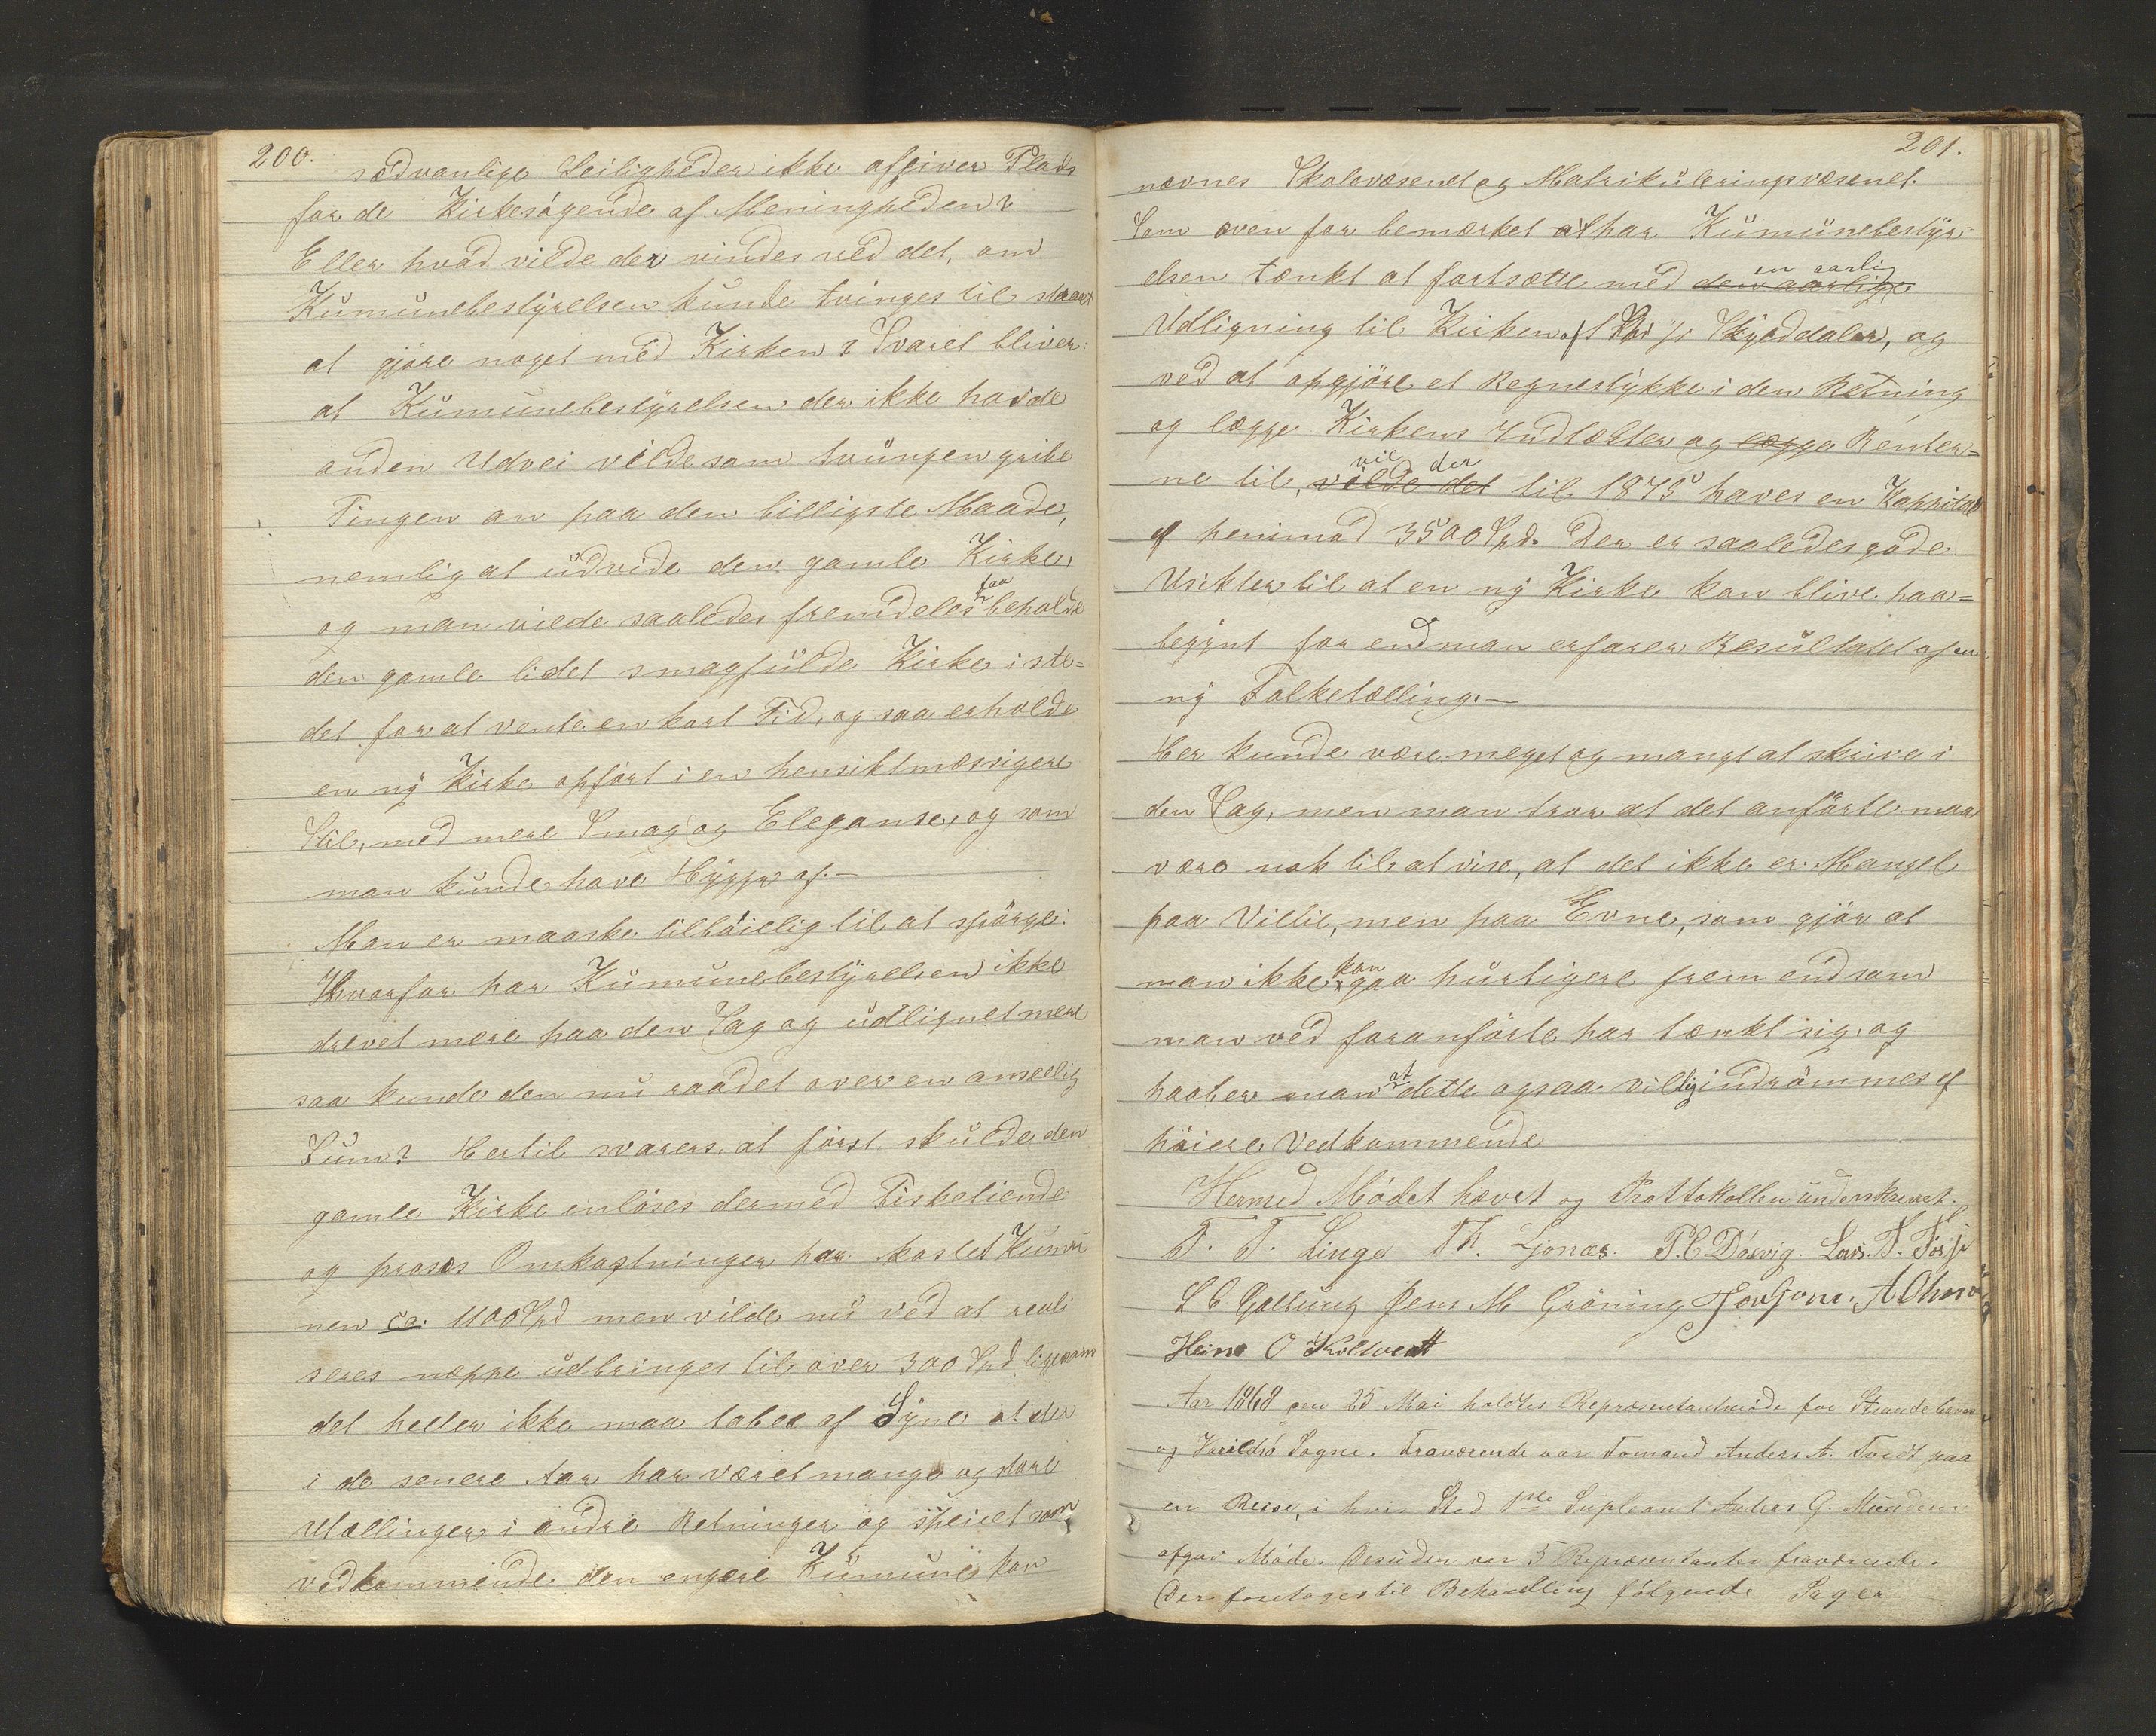 200.
sædvanlige Leiligheder ikke afgiver Plads
for de Kirkesøgende af Meningheden?
Eller hvad vilde der vindes ved det, om
Kumunebestyrelsen kunde tvinges til straxt
at gjøre noget med Kirken? Svaret bliver:
at Kumunebestyrelsen der ikke havde
anden Udvei vilde som tvungen gribe
Tingen an paa den billigste Maade,
nemlig at udvide den gamle Kirke,
og man vilde saaledes fremdeles faa beholde
den gamle lidet smagfulde Kirke i ste-
det for at vente en kort Tid, og saa erholde
en ny Kirke opført i en hensiktmæssigere
Stil, med mere Smag og Eleganse, og som
man kunde have Hygge af.—
Man er maaske tilbøielig til at spørge:
Hvorfor har Kumunebestyrelsen ikke
drevet mere paa den Sag og udlignet mere
saa kunde den nu raadet over en anseelig
Sum? Hertil svares, at først skulde den
gamle Kirke inløses dermed Fisketiende
og proses Omkostninger har kostet Kumu
nen ca. 1100 Spd men vilde nu ved at reali
seres neppe udbringes til over 300 Spd ligesom
det heller ikke maa tabes af Syne at der
i de senere Aar har været mange og store
Udtællinger i andre Retninger og speielt som
vedkommende den engere Kumune kan
201.
nævnes Skolevæsenet og Matrikuleringsvæsenet.
Som oven for bemærket at har Kumunebestyr-
elsen tænkt at fortsætte med den aarlige en aarlig
Udligning til Kirken af 1 Spd pr Skylddaler, og
ved at opgjøre et Regnestykke i den Retning
og lægge Kirkens Indtæxter og lægge Renter-
ne til, vilde det vil der til 1875 haves en Kappital
af henimod 3500 Spd. Der er saaledes gode
Usikter til at en ny Kirke kan blive paa-
begynt for end man erfarer Resultatet af en
ny Folketælling.—
Her kunde være meget og mangt at skrive i
den Sag, men man tror at det anførte maa
være nok til at vise, at det ikke er Mangel
paa Villie, men paa Evne, som gjør at
man ikke kan gaa hurtigere frem end som
man ved foranførte har tænkt sig, og
haaber man at dette ogsaa villig indrømmes af
høiere Vedkommende
Hermed Mødet hævet og Prottokollen underskrevet.
T. T. Linge Th. Ljonæs. P. C Døsvig. Lars. T.
L C Gallung Jens M Grøning
Heine O
Aar 1868 den 25 Mai holdtes Repræsentantmøde for Strandebarms
og Varildsø Sogne. Fraværende var Formand Anders A. Tvedt paa
en Reise, i hvis Sted 1ste Supleant Anders G. Mundem
afgav Møde. Desuden var 5 Repræsentanter fraværende.
Der foretoges til Behandling følgende Sager